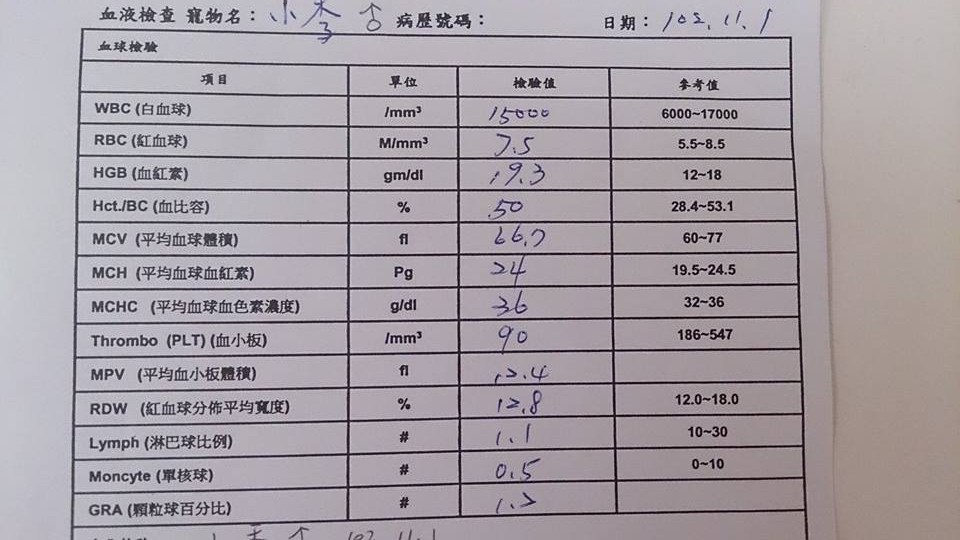 血液檢查 寵物名： 小 ♂ 病歷號碼： 日期： 102.11.1
血球檢驗
項目 單位 檢驗值 參考值
WBC (白血球) /mm³ 15000 6000~17000
RBC (紅血球) M/mm³ 7.5 5.5~8.5
HGB (血紅素) gm/dl 19.3 12~18
Hct./BC (血比容) % 50 28.4~53.1
MCV (平均血球體積) fl 66.7 60~77
MCH (平均血球血紅素) Pg 24 19.5~24.5
MCHC (平均血球血色素濃度) g/dl 36 32~36
Thrombo (PLT) (血小板) /mm³ 90 186~547
MPV (平均血小板體積) fl 12.4
RDW (紅血球分佈平均寬度) % 12.8 12.0~18.0
Lymph (淋巴球比例) # 1.1 10~30
Moncyte (單核球) # 0.5 0~10
GRA (顆粒球百分比) #